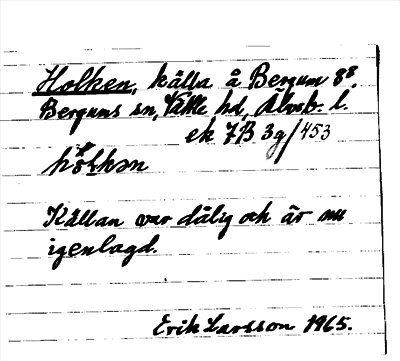 Holken, källa å Bergum 8⁸.
Bergums sn, Vättle hd, Älvsb. l.
ek 7B 3g/453
hólkən
Källan var dålig och är nu
igenlagd.
Erik Larsson 1965.